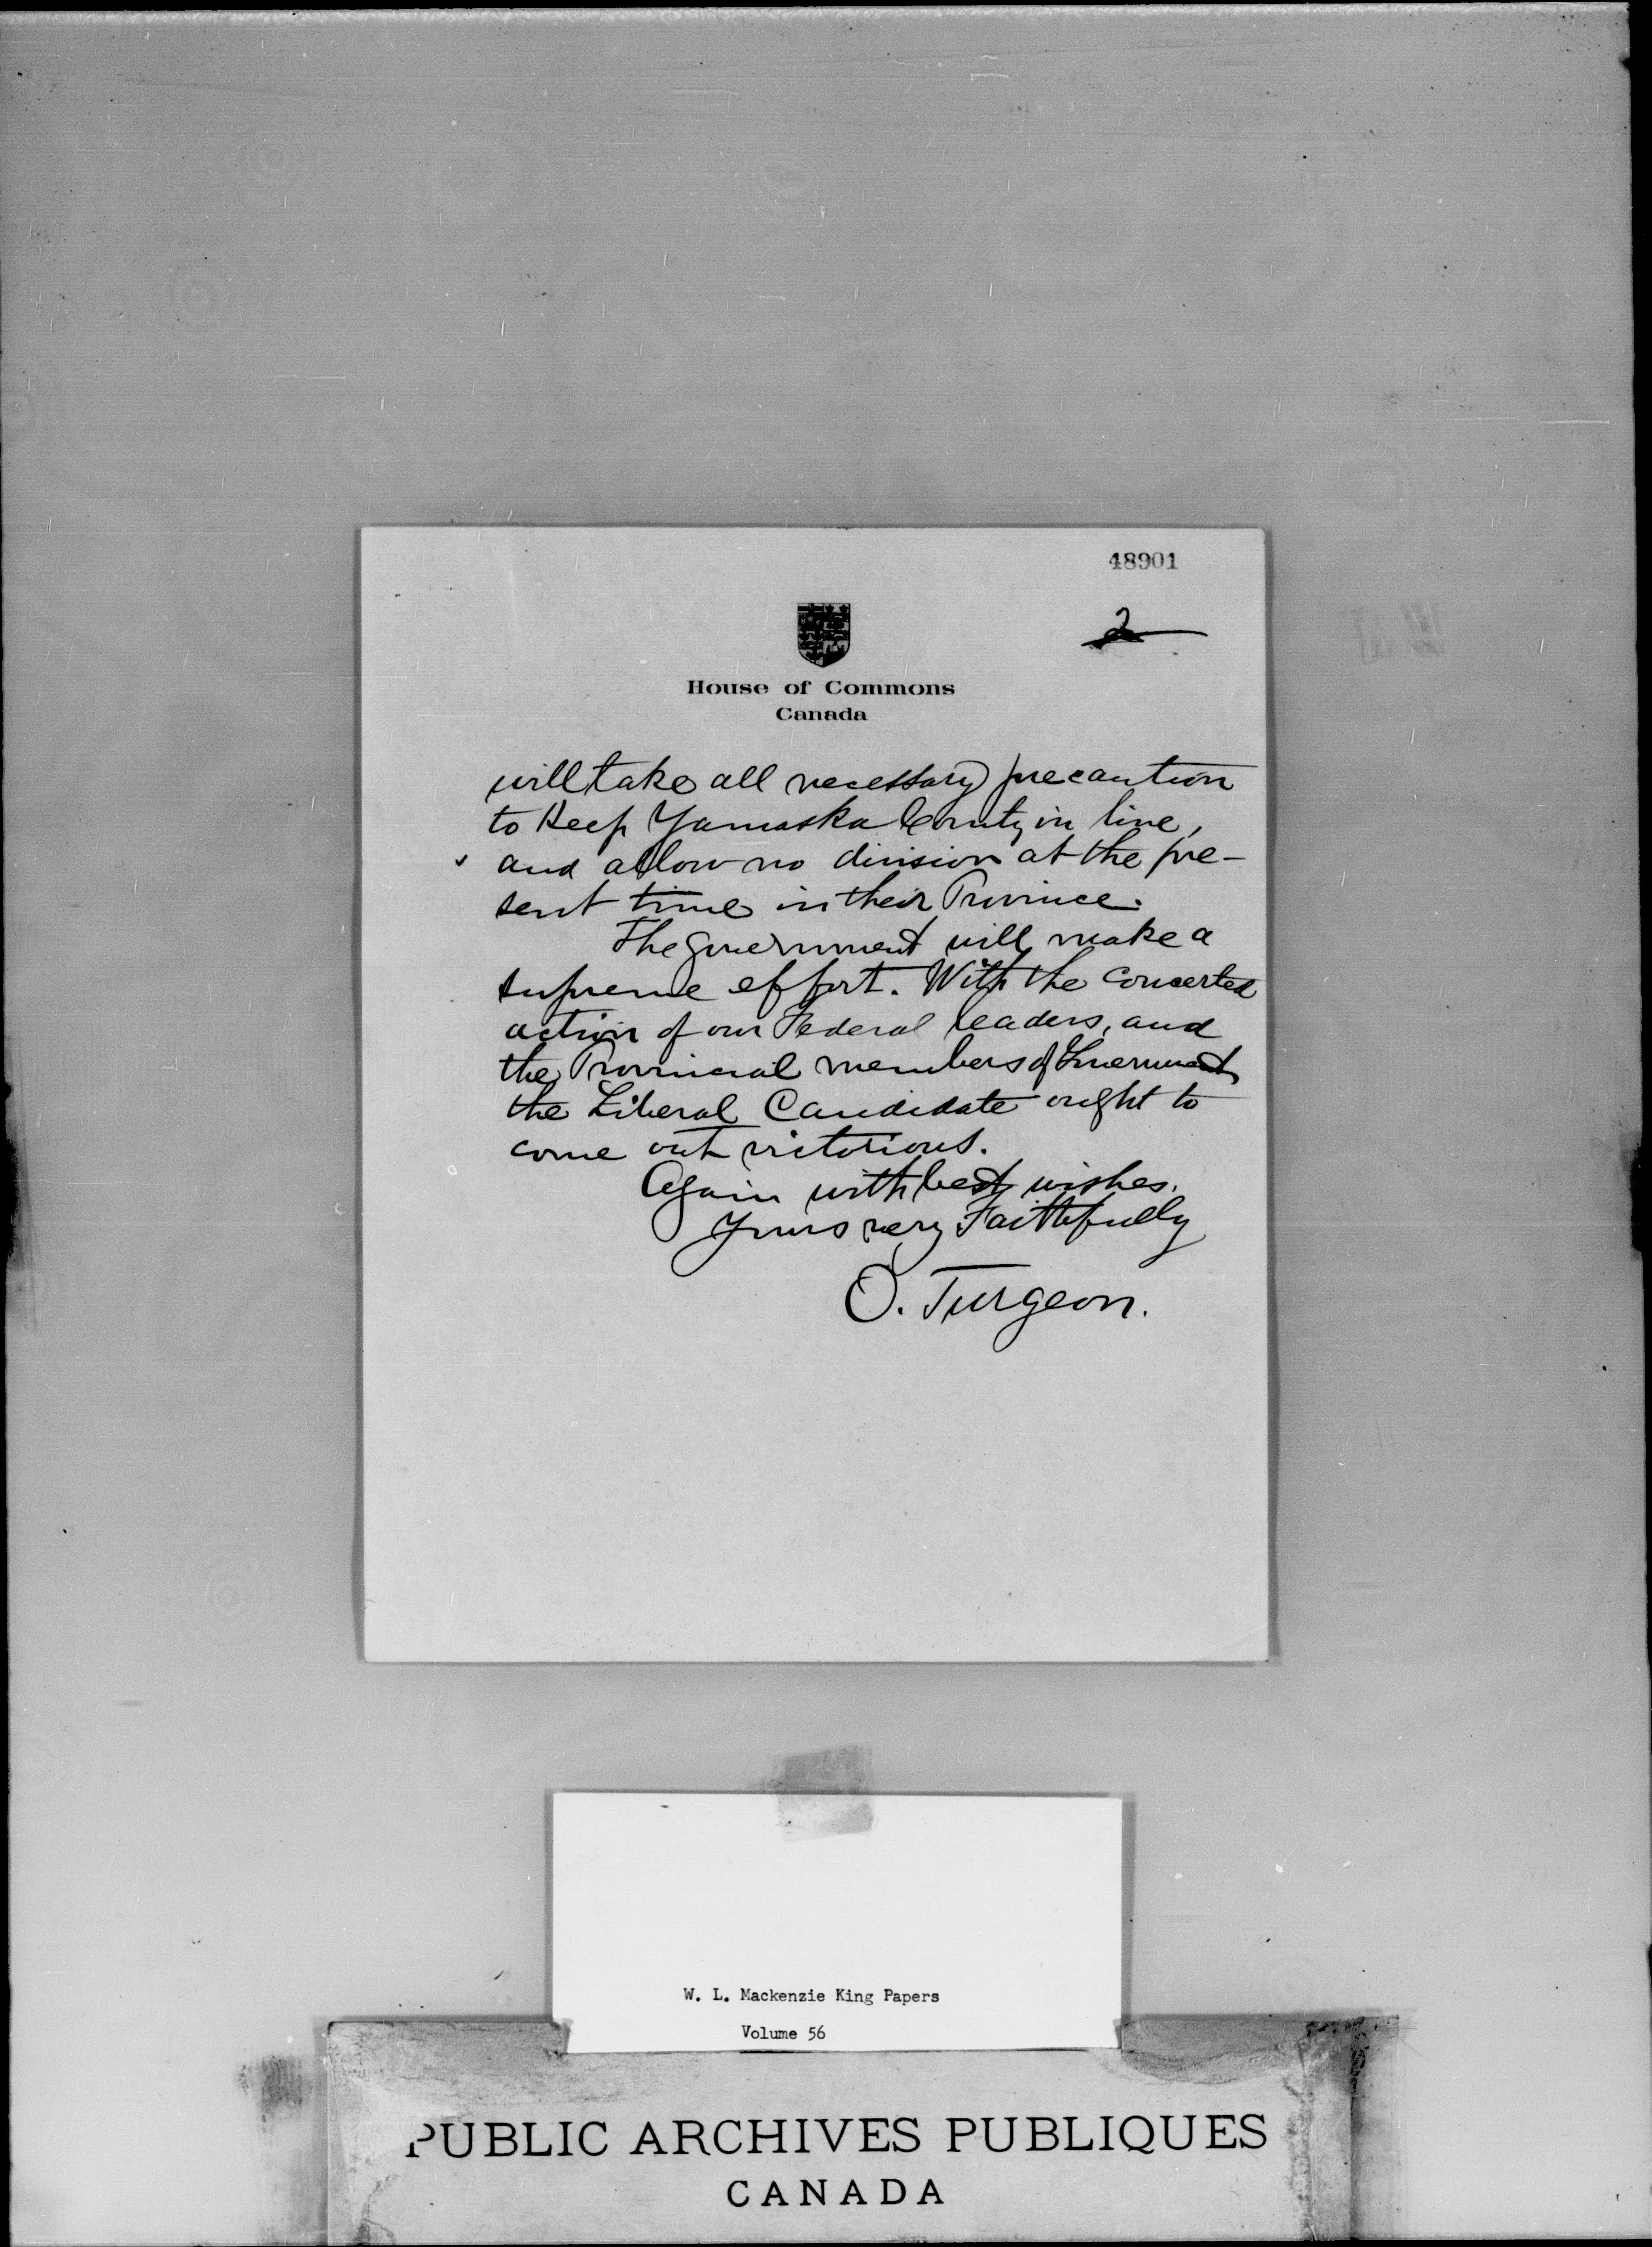 48901
2
House of Commons
Canada
will take all necessary precaution
to Keep Yamaska County in line,
and allow no division at the pre-
sent time in their Province.
The Government will make a
supreme effort. With the concerted
action of our Federal leaders, and
the Provincial members of Government
the Liberal Candidate ought to
come out victorious.
Again with best wishes.
Yours very Faithfully
O. Turgeon.
W. L. Mackenzie King Papers
Volume 56
PUBLIC ARCHIVES PUBLIQUES
CANADA